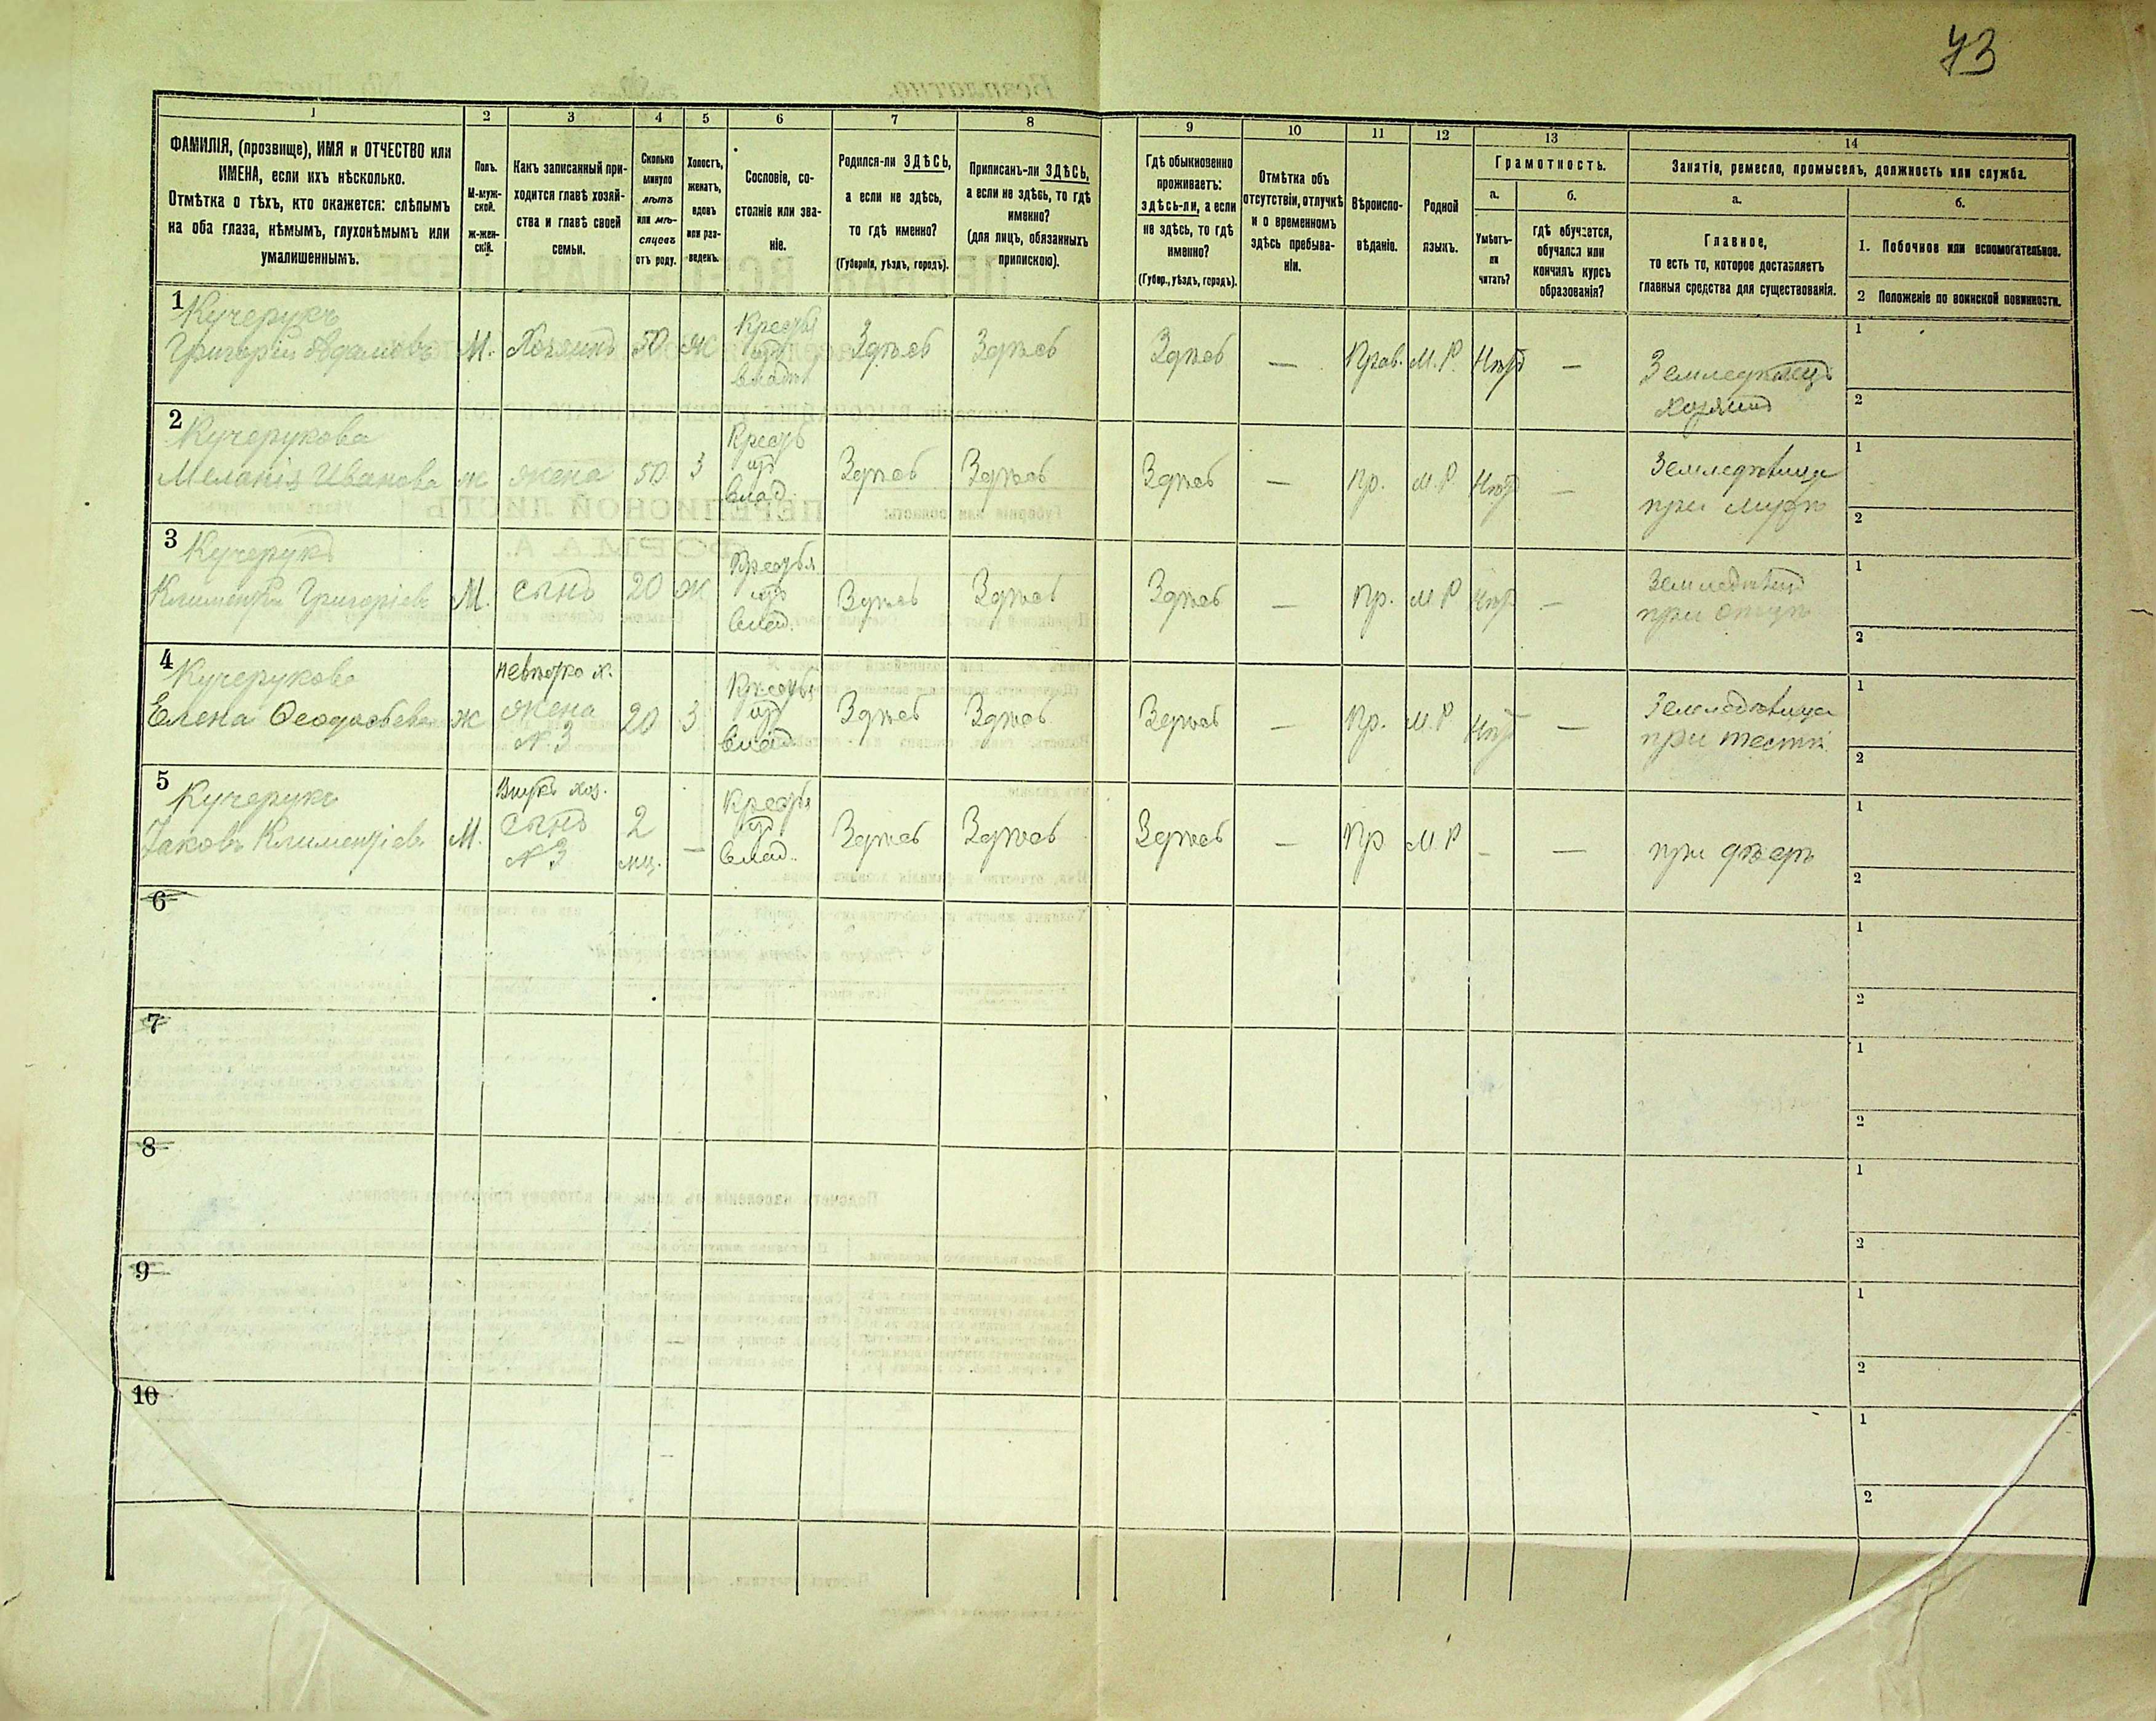 73
1 2 3 4 5 6 7 8 9 10 11 12 13 14
ФАМИЛІЯ, (прозвище), ИМЯ и ОТЧЕСТВО или
ИМЕНА, если ихъ нѣсколько.
Отмѣтка о тѣхъ, кто окажется: слѣпымъ
на оба глаза, нѣмымъ, глухонѣмымъ или
умалишеннымъ.
Полъ.
М-муж-
ской.
ж-жен-
скій.
Какъ записанный при-
ходится главѣ хозяй-
ства и главѣ своей
семьи.
Сколько
минуло
лѣтъ
или мѣ-
сяцевъ
отъ роду.
Холостъ,
женатъ,
вдовъ
или раз-
веденъ.
Сословіе, со-
стояніе или зва-
ніе.
Родился-ли ЗДѢСЬ,
а если не здѣсь,
то гдѣ именно?
(Губернія, уѣздъ, городъ).
Приписанъ-ли ЗДѢСЬ,
а если не здѣсь, то гдѣ
именно?
(для лицъ, обязанныхъ
припискою).
Гдѣ обыкновенно
проживаетъ:
здѣсь-ли, а если
не здѣсь, то гдѣ
именно?
(Губер., уѣздъ, городъ).
Отмѣтка объ
отсутствіи, отлучкѣ
и о временномъ
здѣсь пребыва-
ніи.
Вѣроиспо-
вѣданіе.
Родной
языкъ.
Грамотность.
а.
Умѣетъ-
ли
читать?
б.
гдѣ обучается,
обучался или
кончилъ курсъ
образованія?
Занятія, ремесло, промыселъ, должность или служба.
а.
Главное,
то есть то, которое доставляетъ
главныя средства для существованія.
б.
1. Побочное или вспомогательное.
2 Положеніе по воинской повинности.
1
Кучерукъ
Григорій Адамовъ М. Хозяинъ 50 Ж Крестья изъ влад. Здѣсь Здѣсь Здѣсь — Прав. М.Р. Нѣтъ — Земледѣлецъ
хозяинъ
1
2
2
Кучерукова
Меланія Иванова ж жена 50 З Кресть изъ влад. Здѣсь Здѣсь Здѣсь — Пр. М.Р. Нѣтъ — Земледѣлица
при мужѣ
1
2
3
Кучерукъ
Климентій Григоріевъ М. сынъ 20 Ж Крестья изъ влад. Здѣсь Здѣсь Здѣсь — Пр. М Р Нѣтъ — Земледѣлецъ
при отцѣ
1
2
4
Кучерукова
Елена Ѳеодосіева ж невѣстка х. жена № 3 20 З Крестья изъ влад. Здѣсь Здѣсь Здѣсь — Пр. М.Р Нѣтъ — Земледѣлица
при тестѣ
1
2
5
Кучерукъ
Іаковъ Климентіевъ М. Внукъ хоз. сынъ № 3 2 мц. — Крестья изъ влад. Здѣсь Здѣсь Здѣсь — Пр М.Р — — при дѣдѣ
1
2
6
1
2
7
1
2
8
1
2
9
1
2
10
1
2